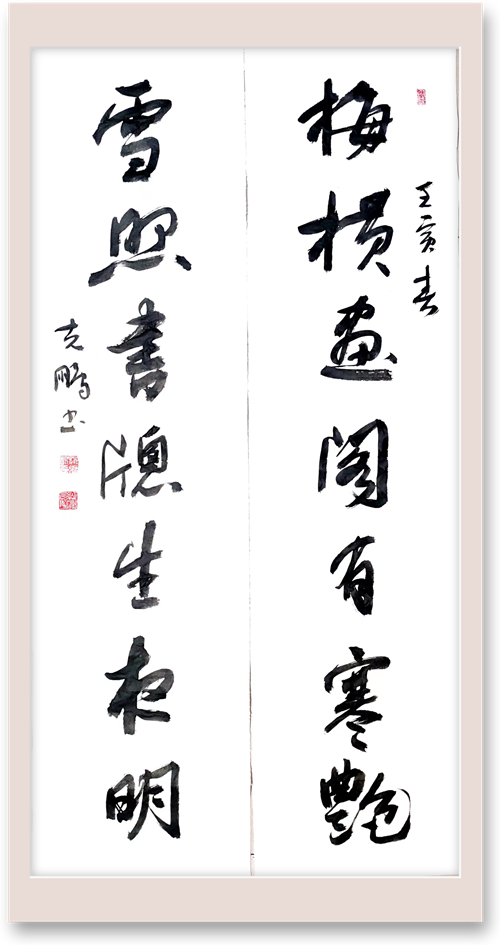 壬寅春
梅横画阁有寒艳
雪照書牕生夜明
克鹏书